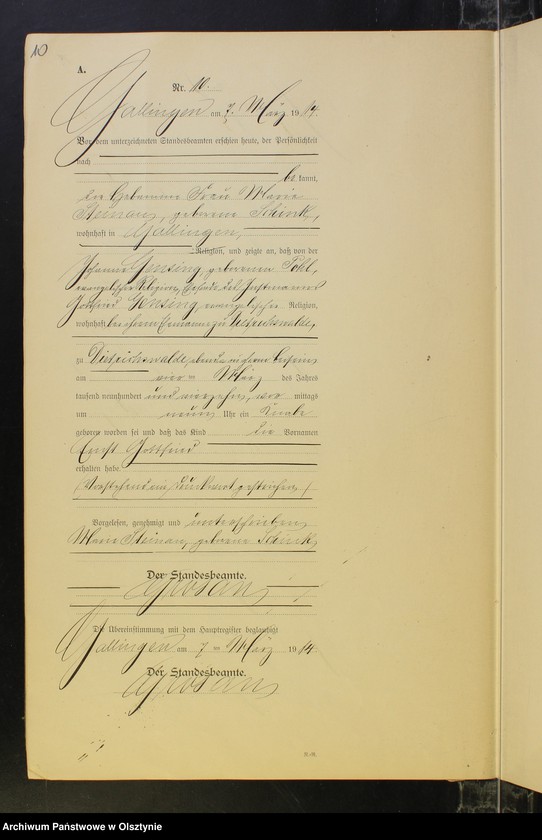 10
A.
Nr. 10.
Gallingen am 7. März 1914.
Vor dem unterzeichneten Standesbeamten erschien heute, der Persönlichkeit
nach
bekannt,
die Hebamme Frau Marie
Steinau, geborene Schink,
wohnhaft in Gallingen,
Religion, und zeigte an, daß von der
Johanne Gensing geborenen Pohl,
evangelischer Religion, Ehefrau des
Gottfried Gensing, evangelischer Religion,
wohnhaft bei ihrem Ehemanne zu Dietrichswalde,
zu Dietrichswalde,
am vier März des Jahres
tausend neunhundert und vierzehn, vor mittags
um neun Uhr ein Knabe
geboren worden sei und daß das Kind die Vornamen
Ernst Gottfried
erhalten habe.
Vorstehend ein Druckwort gestrichen
Vorgelesen, genehmigt und unterschrieben
Marie Steinau, geborene Schink
Der Standesbeamte.
Die Übereinstimmung mit dem Hauptregister beglaubigt
Gallingen am 7 März 1914
Der Standesbeamte.
Archiwum Państwowe w Olsztynie